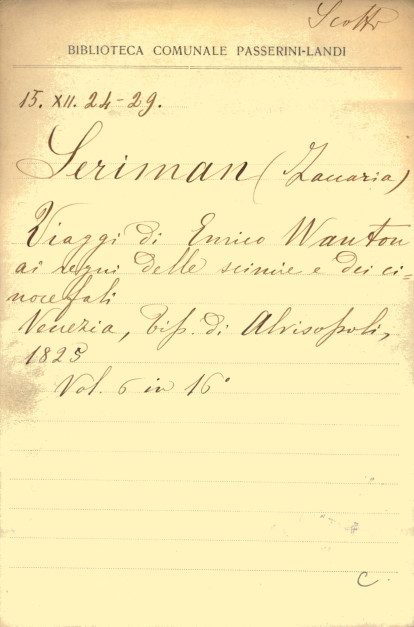 Scotti
BIBLIOTECA COMUNALE PASSERINI-LANDI
15. XII. 24-29.
Seriman (Zaccaria)
Viaggi di Enrico Wanton
ai regni delle scimie e dei ci=
nocefali
Venezia, tip. di Alvisopoli,
1825
Vol. 6 in 16°
C.